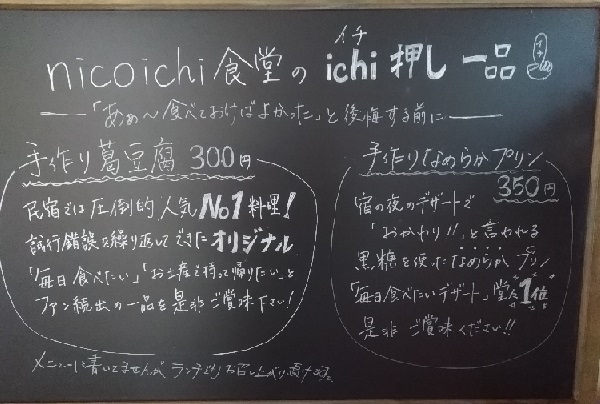 nicoichi食堂のichi押し一品
イチ
「あぁ〜食べておけばよかった」と後悔する前に
手作り葛豆腐 300円
民宿では圧倒的人気No1料理!
試行錯誤を繰り返してできたオリジナル
「毎日食べたい」「お土産で持って帰りたい」と
ファン続出の一品を是非ご賞味下さい!
手作りなめらかプリン
350円
宿の夜のデザートで
「おかわり!!」と言われる
黒糖を使ったなめらかプリン
「毎日食べたいデザート」堂々1位
是非ご賞味ください!!
メニューに書いてませんがランチでもお召し上がり頂けます。